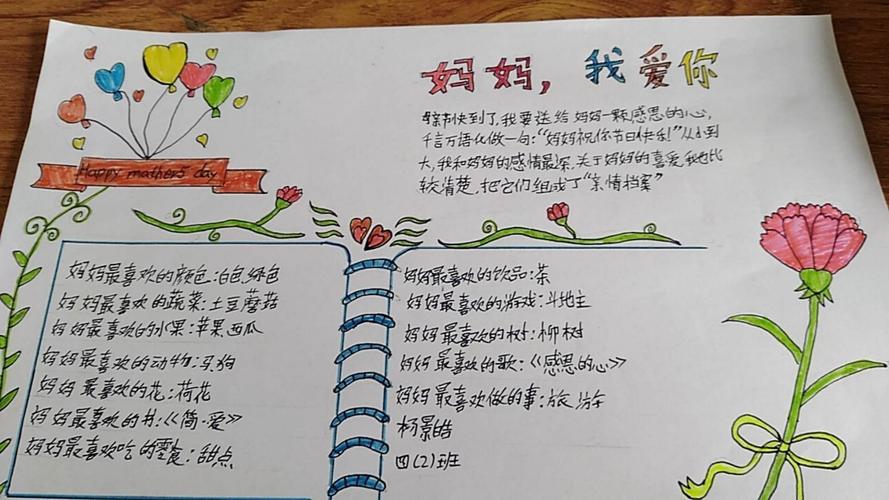 妈妈，我爱你
母亲节快到了，我要送给妈妈一颗感恩的心，
千言万语化做一句："妈妈祝你节日快乐！"从小到
大，我和妈妈的感情最深，关于妈妈的喜爱，我也比
较清楚，把它们组成了"亲情档案"
Happy mathers day
妈妈最喜欢的颜色：白色绿色
妈妈最喜欢的蔬菜：土豆蘑菇
妈妈最喜欢的水果：苹果西瓜
妈妈最喜欢的动物：马狗
妈妈最喜欢的花：荷花
妈妈最喜欢的书：《简·爱》
妈妈最喜欢吃的零食：甜点
妈妈最喜欢的饮品：茶
妈妈最喜欢的游戏：斗地主
妈妈最喜欢的树：柳树
妈妈最喜欢的歌：《感恩的心》
妈妈最喜欢做的事：旅游
杨景皓
四（2）班